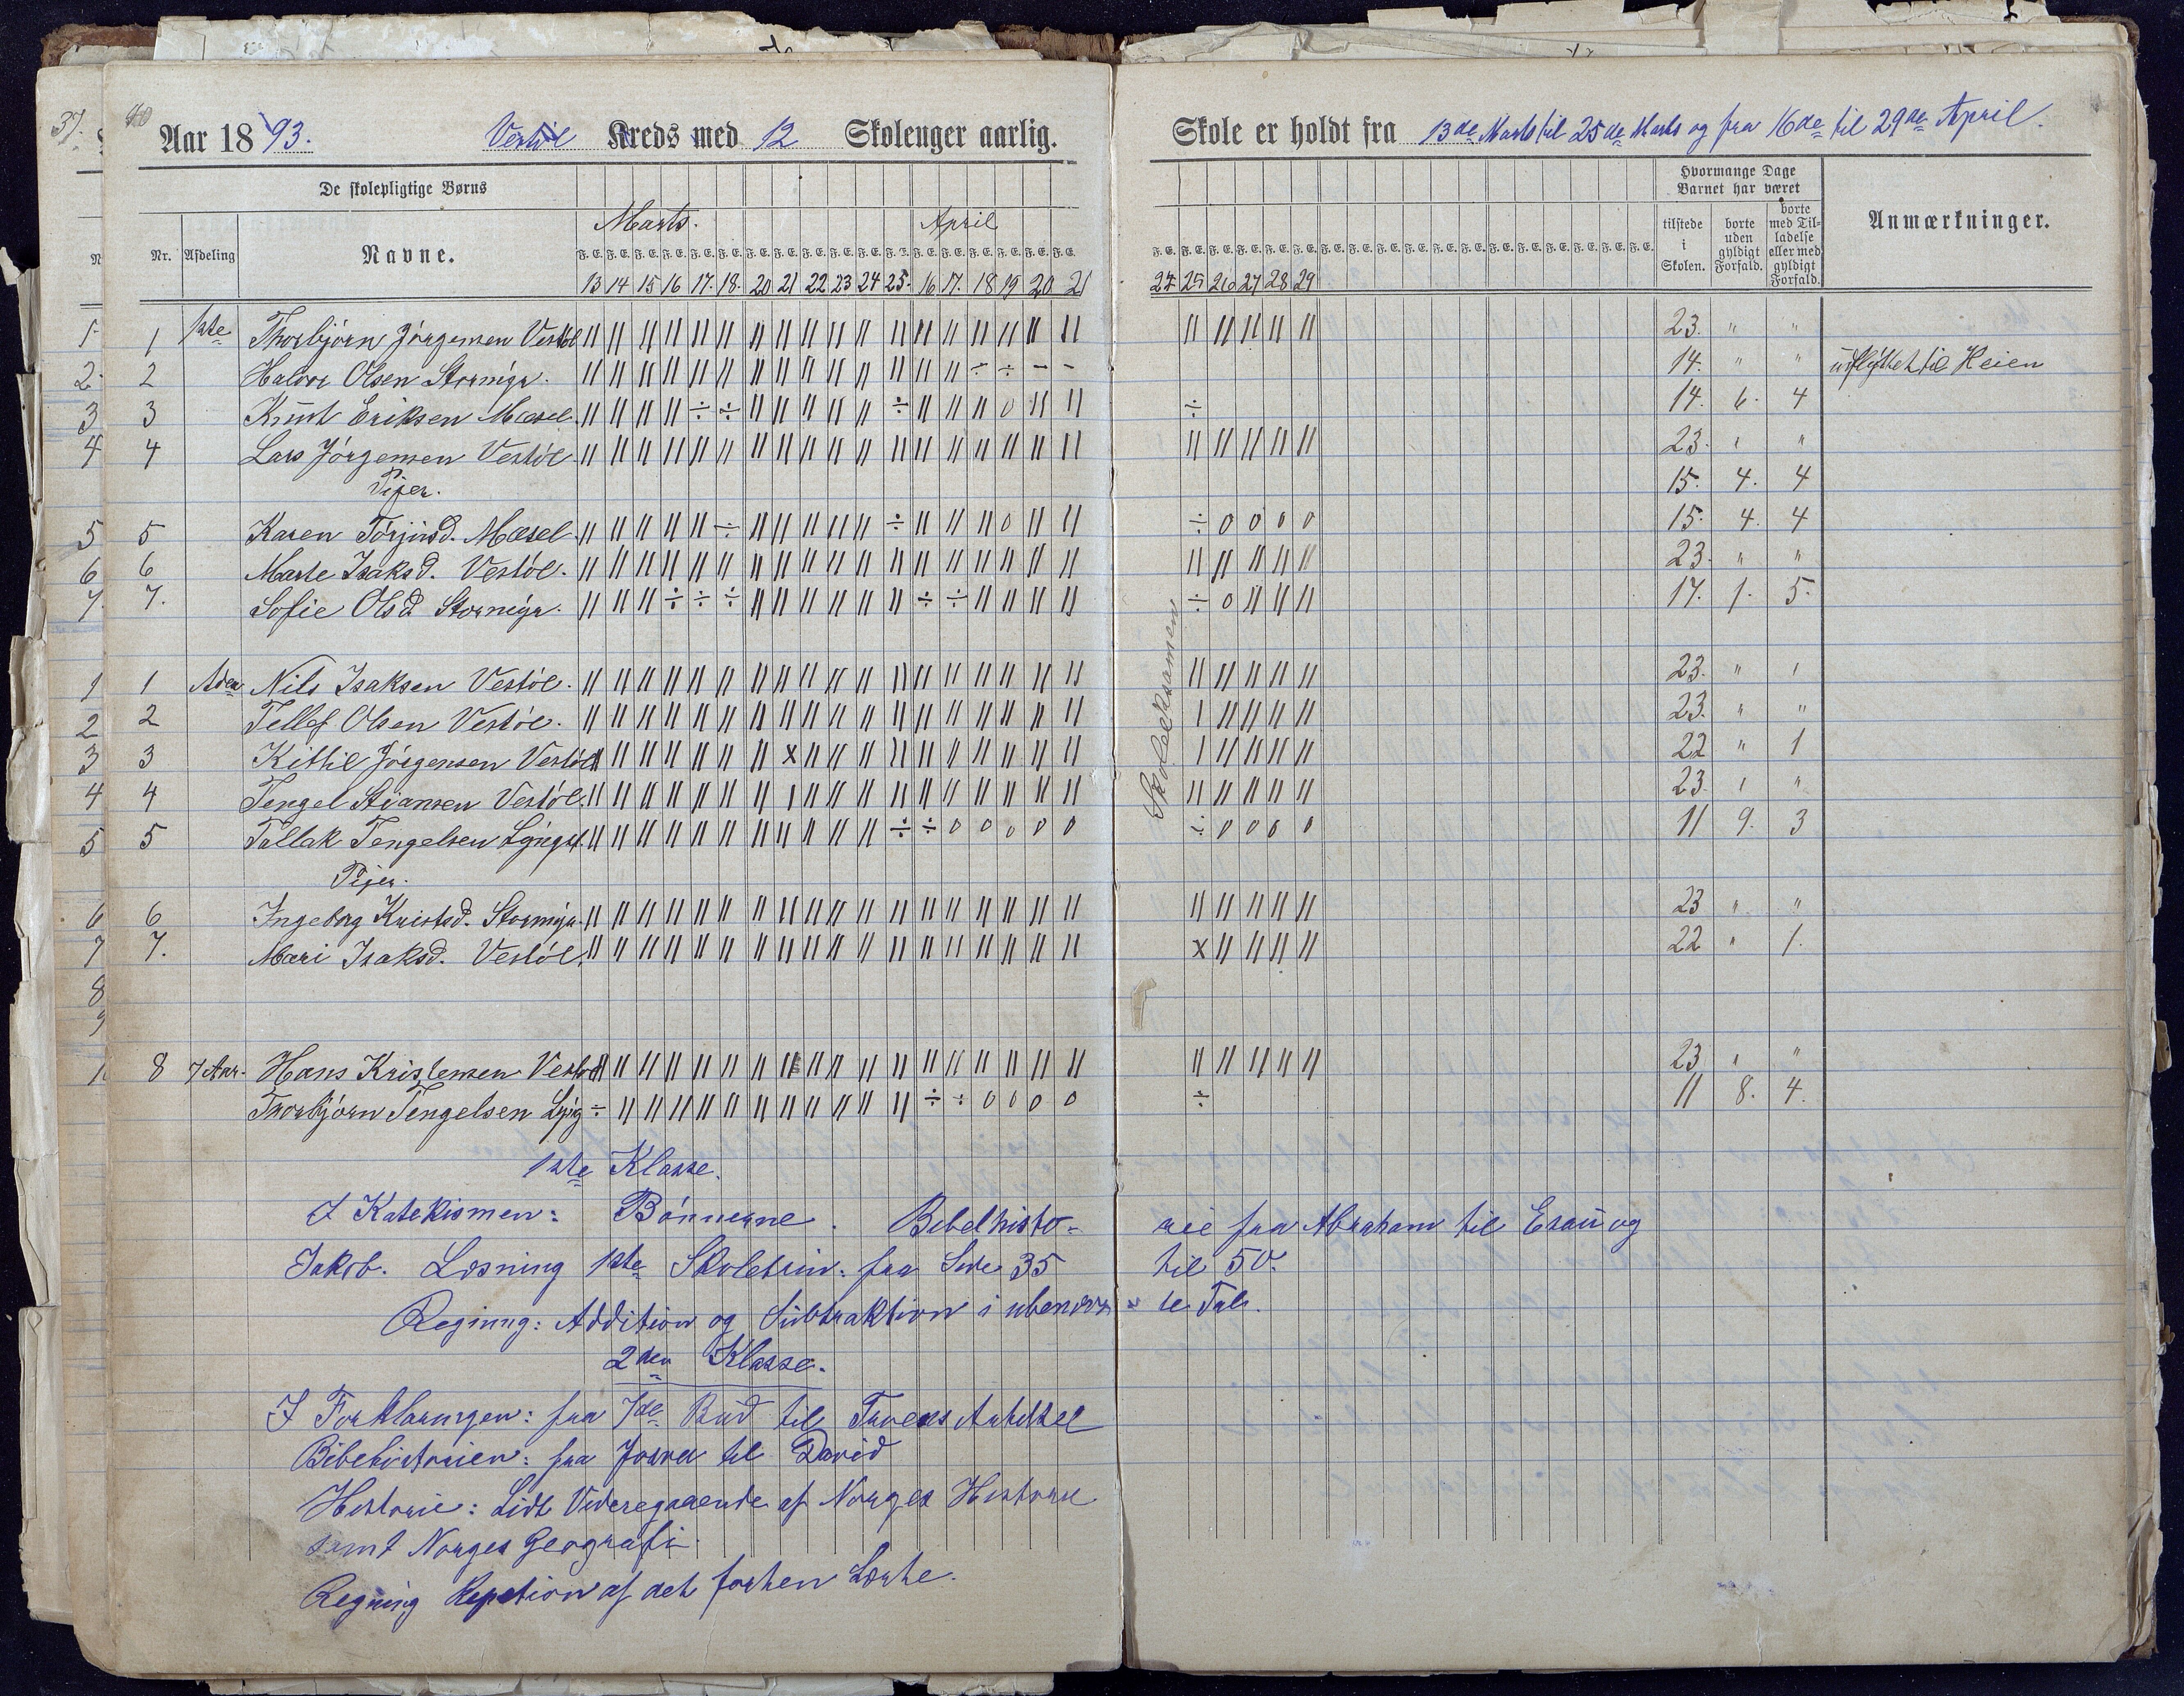 40
Aar 1893. Vestøl Kreds med 12 Skolenger aarlig. Skole er holdt fra 13de Marts til 25de Marts og fra 16de til 29de April.
De skolepligtige Børns
Hvormange Dage Barnet har været
Marts. April
Nr. Afdeling Navne. F. E. tilstede i Skolen. borte uden gyldigt Forfald. borte med Tilladelse eller med gyldigt Forfald. Anmærkninger.
13 14 15 16 17. 18. 20 21 22 23 24 25. 16 17. 18 19 20 21 24 25 26 27 28 29
1 1ste Thorbjørn Jørgensen Vestøl 23. " "
2 Halvor Olsen Stormyr. 14. " " udflyttet til Heien
3 Knut Eriksen Mæsel. 14. 6. 4
4 Lars Jørgensen Vestøl 23. " "
Piger. 15. 4. 4
5 Karen Torjusd. Mæsel 15. 4. 4
6 Marte Isaksd. Vestøl. 23. " "
7. Sofie Olsd Stormyr. 17. 1. 5.
Skoleeksamen
1 Aden Nils Isaksen Vestøl. 23. " "
2 Tellef Olsen Vestøl. 23. " "
3 Kittil Jørgensen Vestøl 22 " 1
4 Tengel Stiansen Vestøl. 23. " "
5 Tallak Tengelsen 11 9. 3
Piger.
6 Ingeborg Kristsd. Stormyr. 23 " "
7. Mari Isaksd. Vestøl. 22 " 1.
8 7 Aar. Hans Kristensen Vestøl 23 " "
Thorbjørn Tengelsen 11 8. 4.
1ste Klasse.
I Katekismen: Bønnerne. Bibelhisto- rie fra Abraham til Esau og
Jakob. Læsning 1ste Skoletrin: fra Side 35 til 50.
Regning: Addition og Subtraktion i ubenævn- te Tal.
2den Klasse.
I Forklaringen: fra 7de Bud til Troens Artikel
Bibelhistorien: fra Josva til David
Historie: Lidt Videregaaende af Norges Historie
samt Norges Geografi.
Regning Repetion af det forhen Lærte.